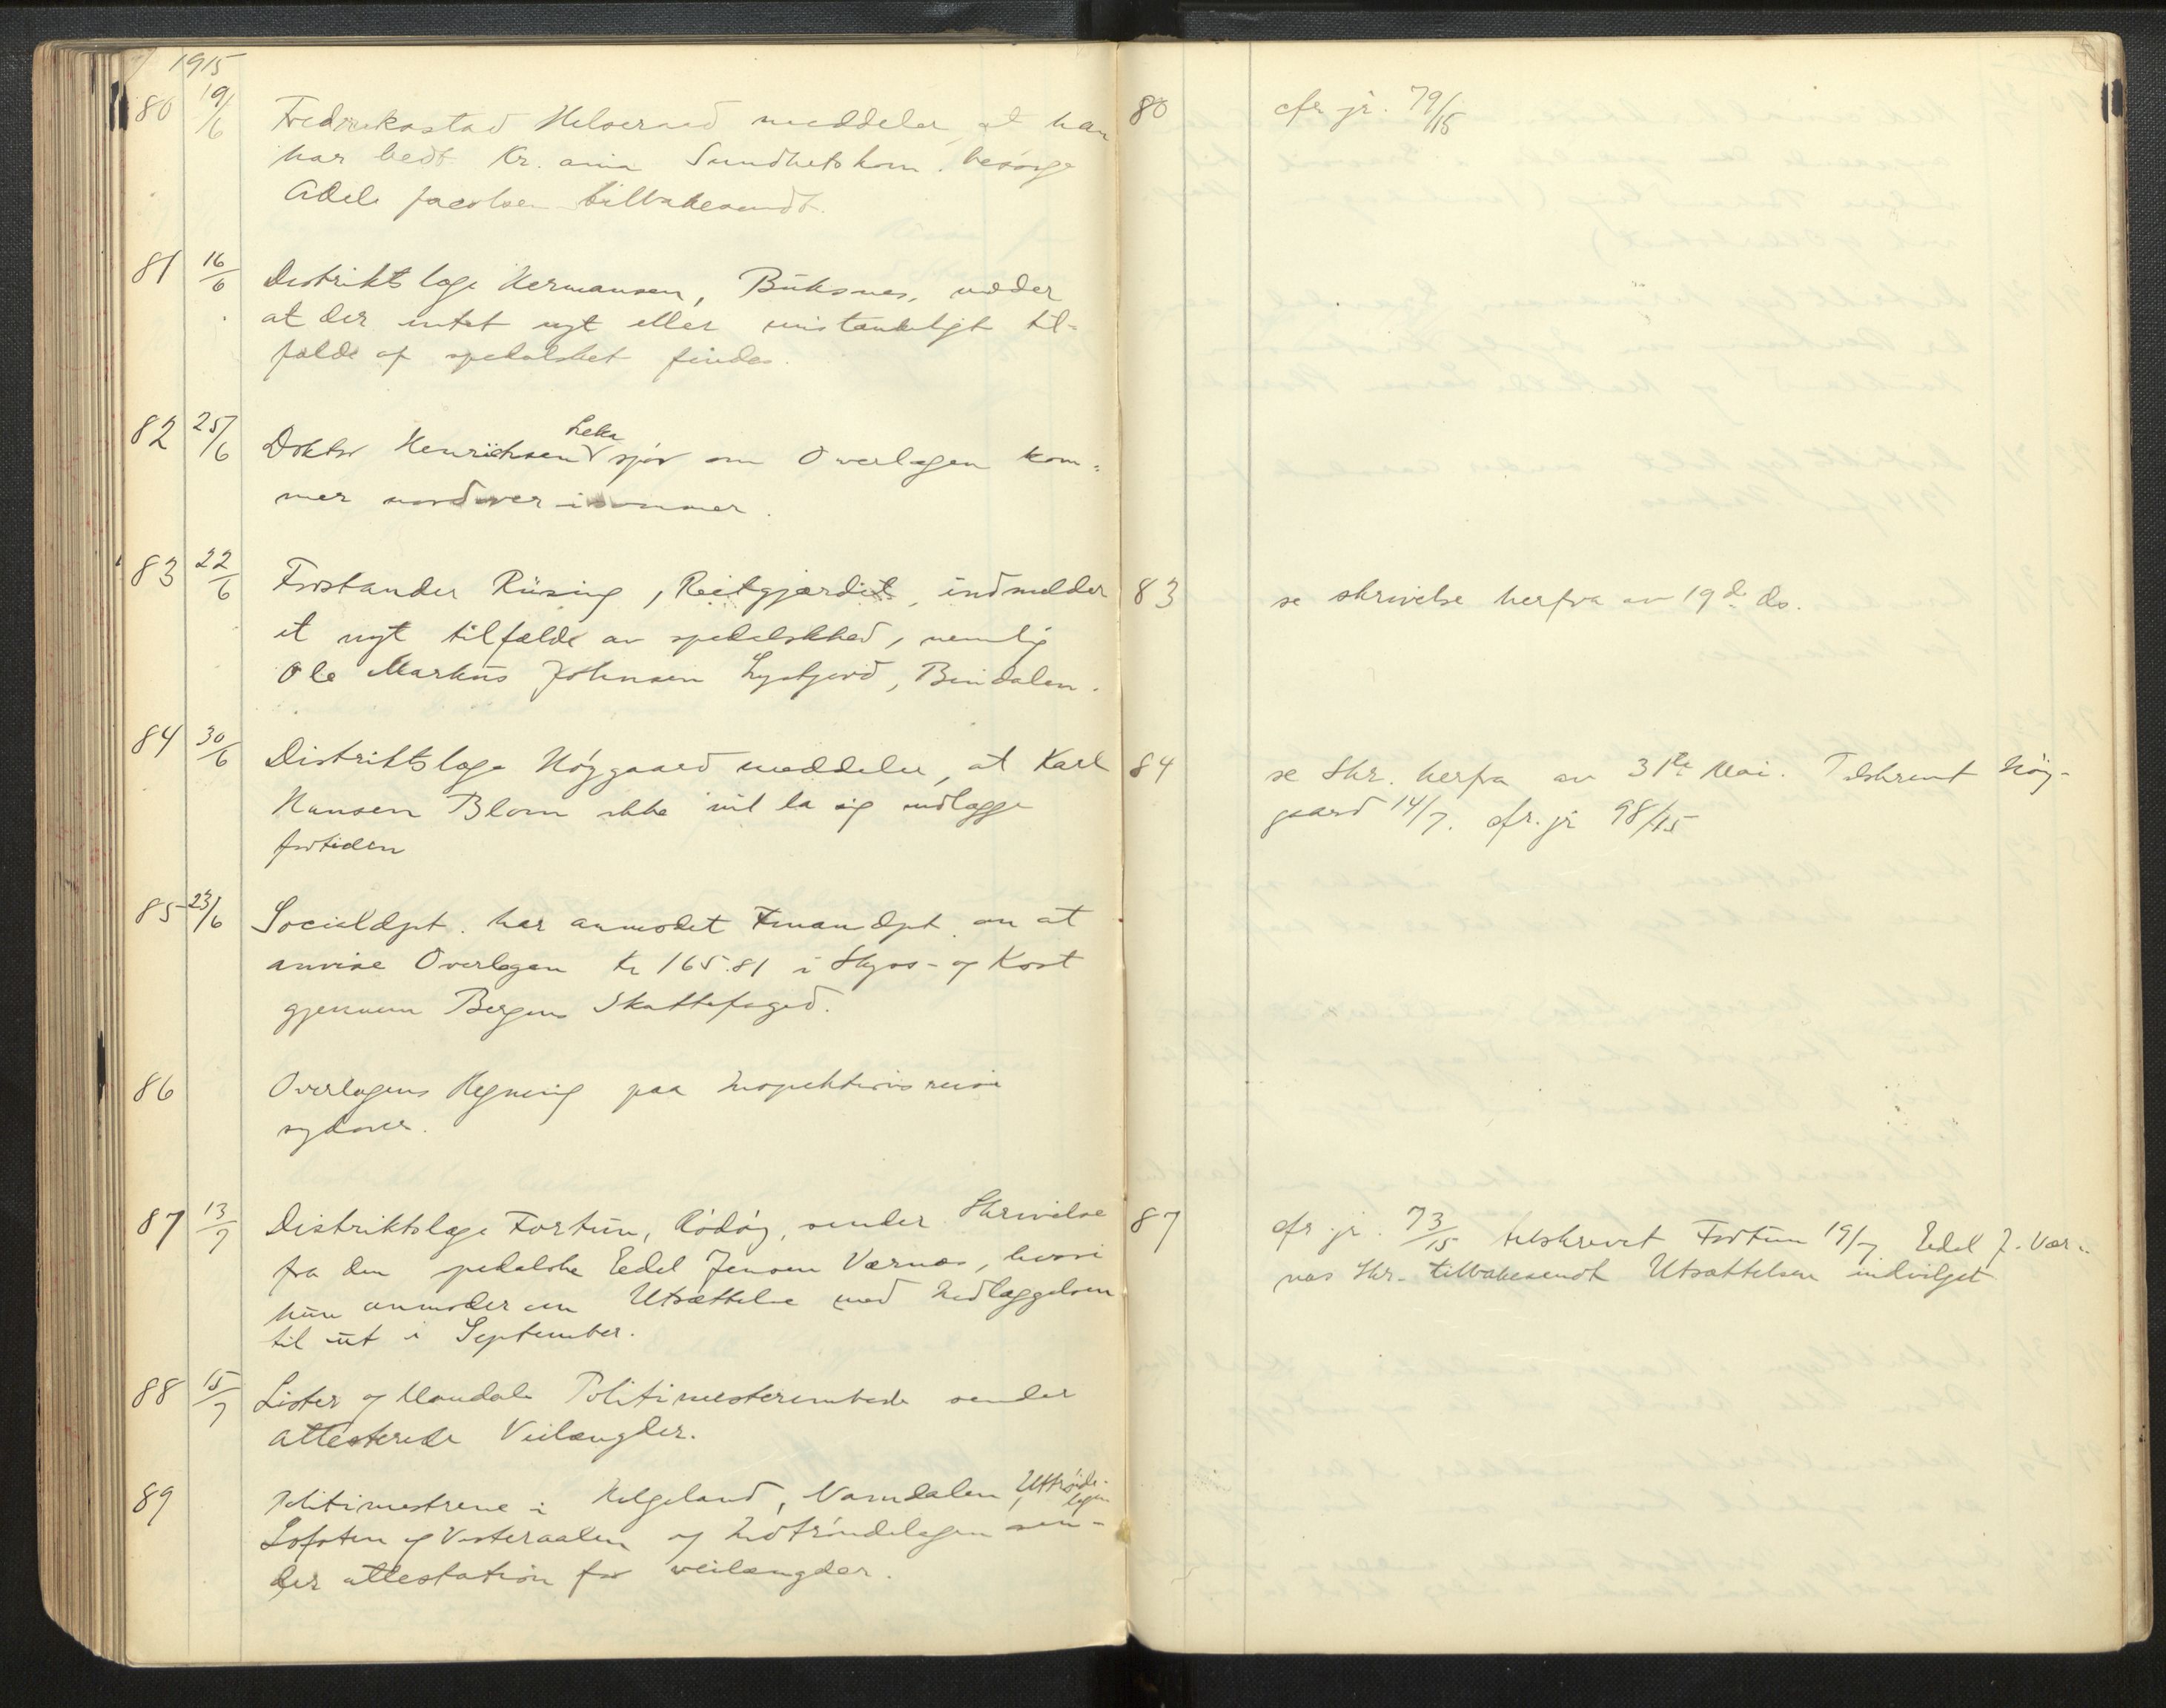 1915
80 19/6 Fredrikstad Helseraad meddeler, at han
har bedt Kr.ania Sundhetskom. besørge
Adele Jacobsen tilbakesendt.
81 16/6 Distriktslæge Hermansen, Buksnes, melder
at der intet nyt eller mistænkeligt til-
fælde af spedalskhet findes.
82 25/6 Doktor Henrichsen Leka spør om Overlægen kom-
mer nordover i sommer.
83 22/6 Forstander Rüsing, Reitgjærdet, indmelder
et nyt tilfælde av spedalskhed, nemlig
Ole Markus Johnsen Lysfjord, Bindalen.
84 30/6 Distriktslæge Høygaard meddeler, at Karl
Hansen Blom ikke vil la sig indlægge
fortiden
85 23/6 Socialdpt. har anmodet Finansdpt. om at
anvise Overlægen Kr 165.81 i Skyss- og Kost
gjennem Bergens Skattefoged.
86 Overlægens Regning paa Inspektionsreise
sydover.
87 13/7 Distriktslæge Fortun, Rödöy, sender Skrivelse
fra den spedalske Edel Jensen Værnes, hvori
hun anmoder om Utsættelse med Indlæggelsen
til ut i September.
88 15/7 Lister og Mandals Politimesterembede sender
attesterede Veilængder.
89 Politimestrene i Helgeland, Namdalen, Uttrönde-
lagen
Lofoten og Vesteraalen og Indtröndelagen sen-
der attestation for veilængder.
80 cfr. jr. 79/15
83 se skrivelse herfra av 19de ds.
84 se Skr. herfra av 31te Mai. Tilskrevet Höy-
gaard 14/7. cfr. jr 98/15
87 cfr. jr. 73/15 tilskrevet Fortun 19/7. Edel J. Vær-
nes Skr. tilbakesendt Utsættelsen indvilget